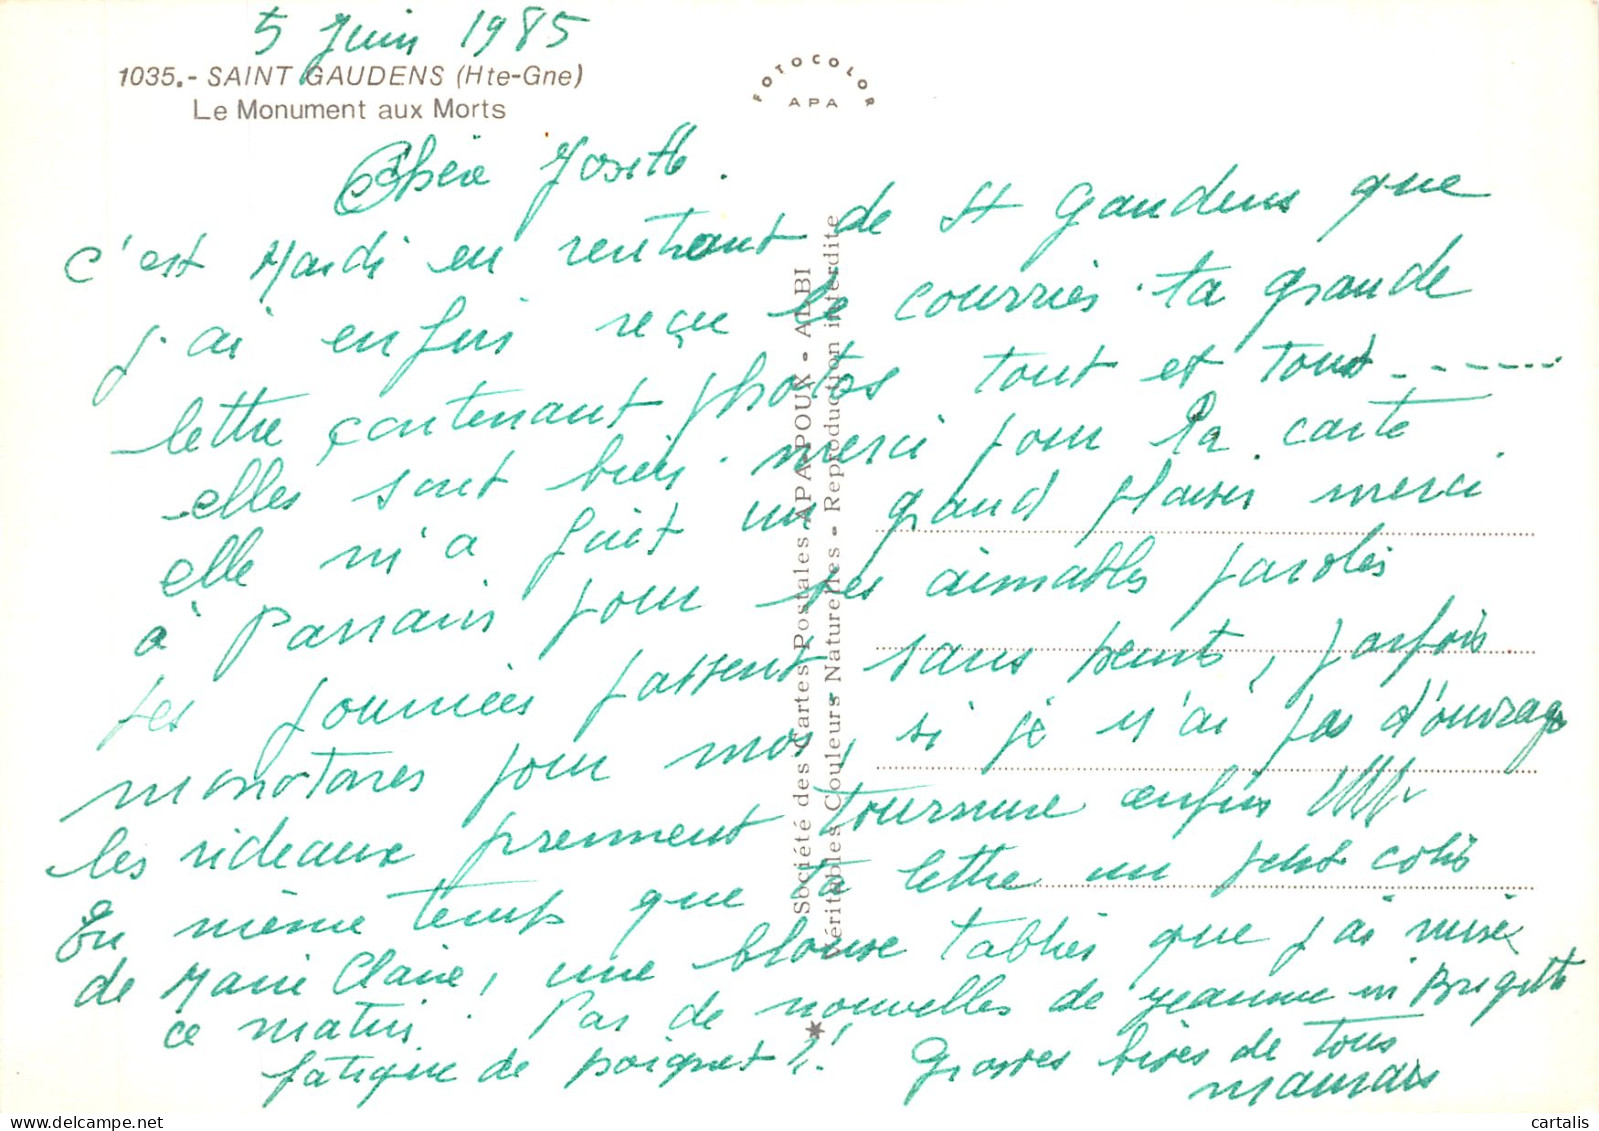 5 Juin 1985
1035.- SAINT GAUDENS (Hte-Gne)
Le Monument aux Morts
FOTOCOLOR
APA
Chère Josette.
c'est Mardi en rentrant de St Gaudens que
j'ai enfin reçu le courrier. ta grande
lettre contenant photos tout et tout - - - - - -
elles sont bien. merci pour la carte
elle m'a fait un grand plaisir merci
à Parrain pour ses aimables paroles
les journées passent sans heurts, parfois
monotones pour moi, si je n'ai pas d'ouvrage
les rideaux prennent tournure enfin
En même temps que ta lettre un petit colis
de Marie Claire, une blouse tablier que j'ai mise
ce matin. Pas de nouvelles de Jeanne ni Brigitte
fatigue de poignet ?!
Grosses bises de tous
Société des Cartes Postales APA-POUX - ALBI
Véritables Couleurs Naturelles - Reproduction interdite
cartalis